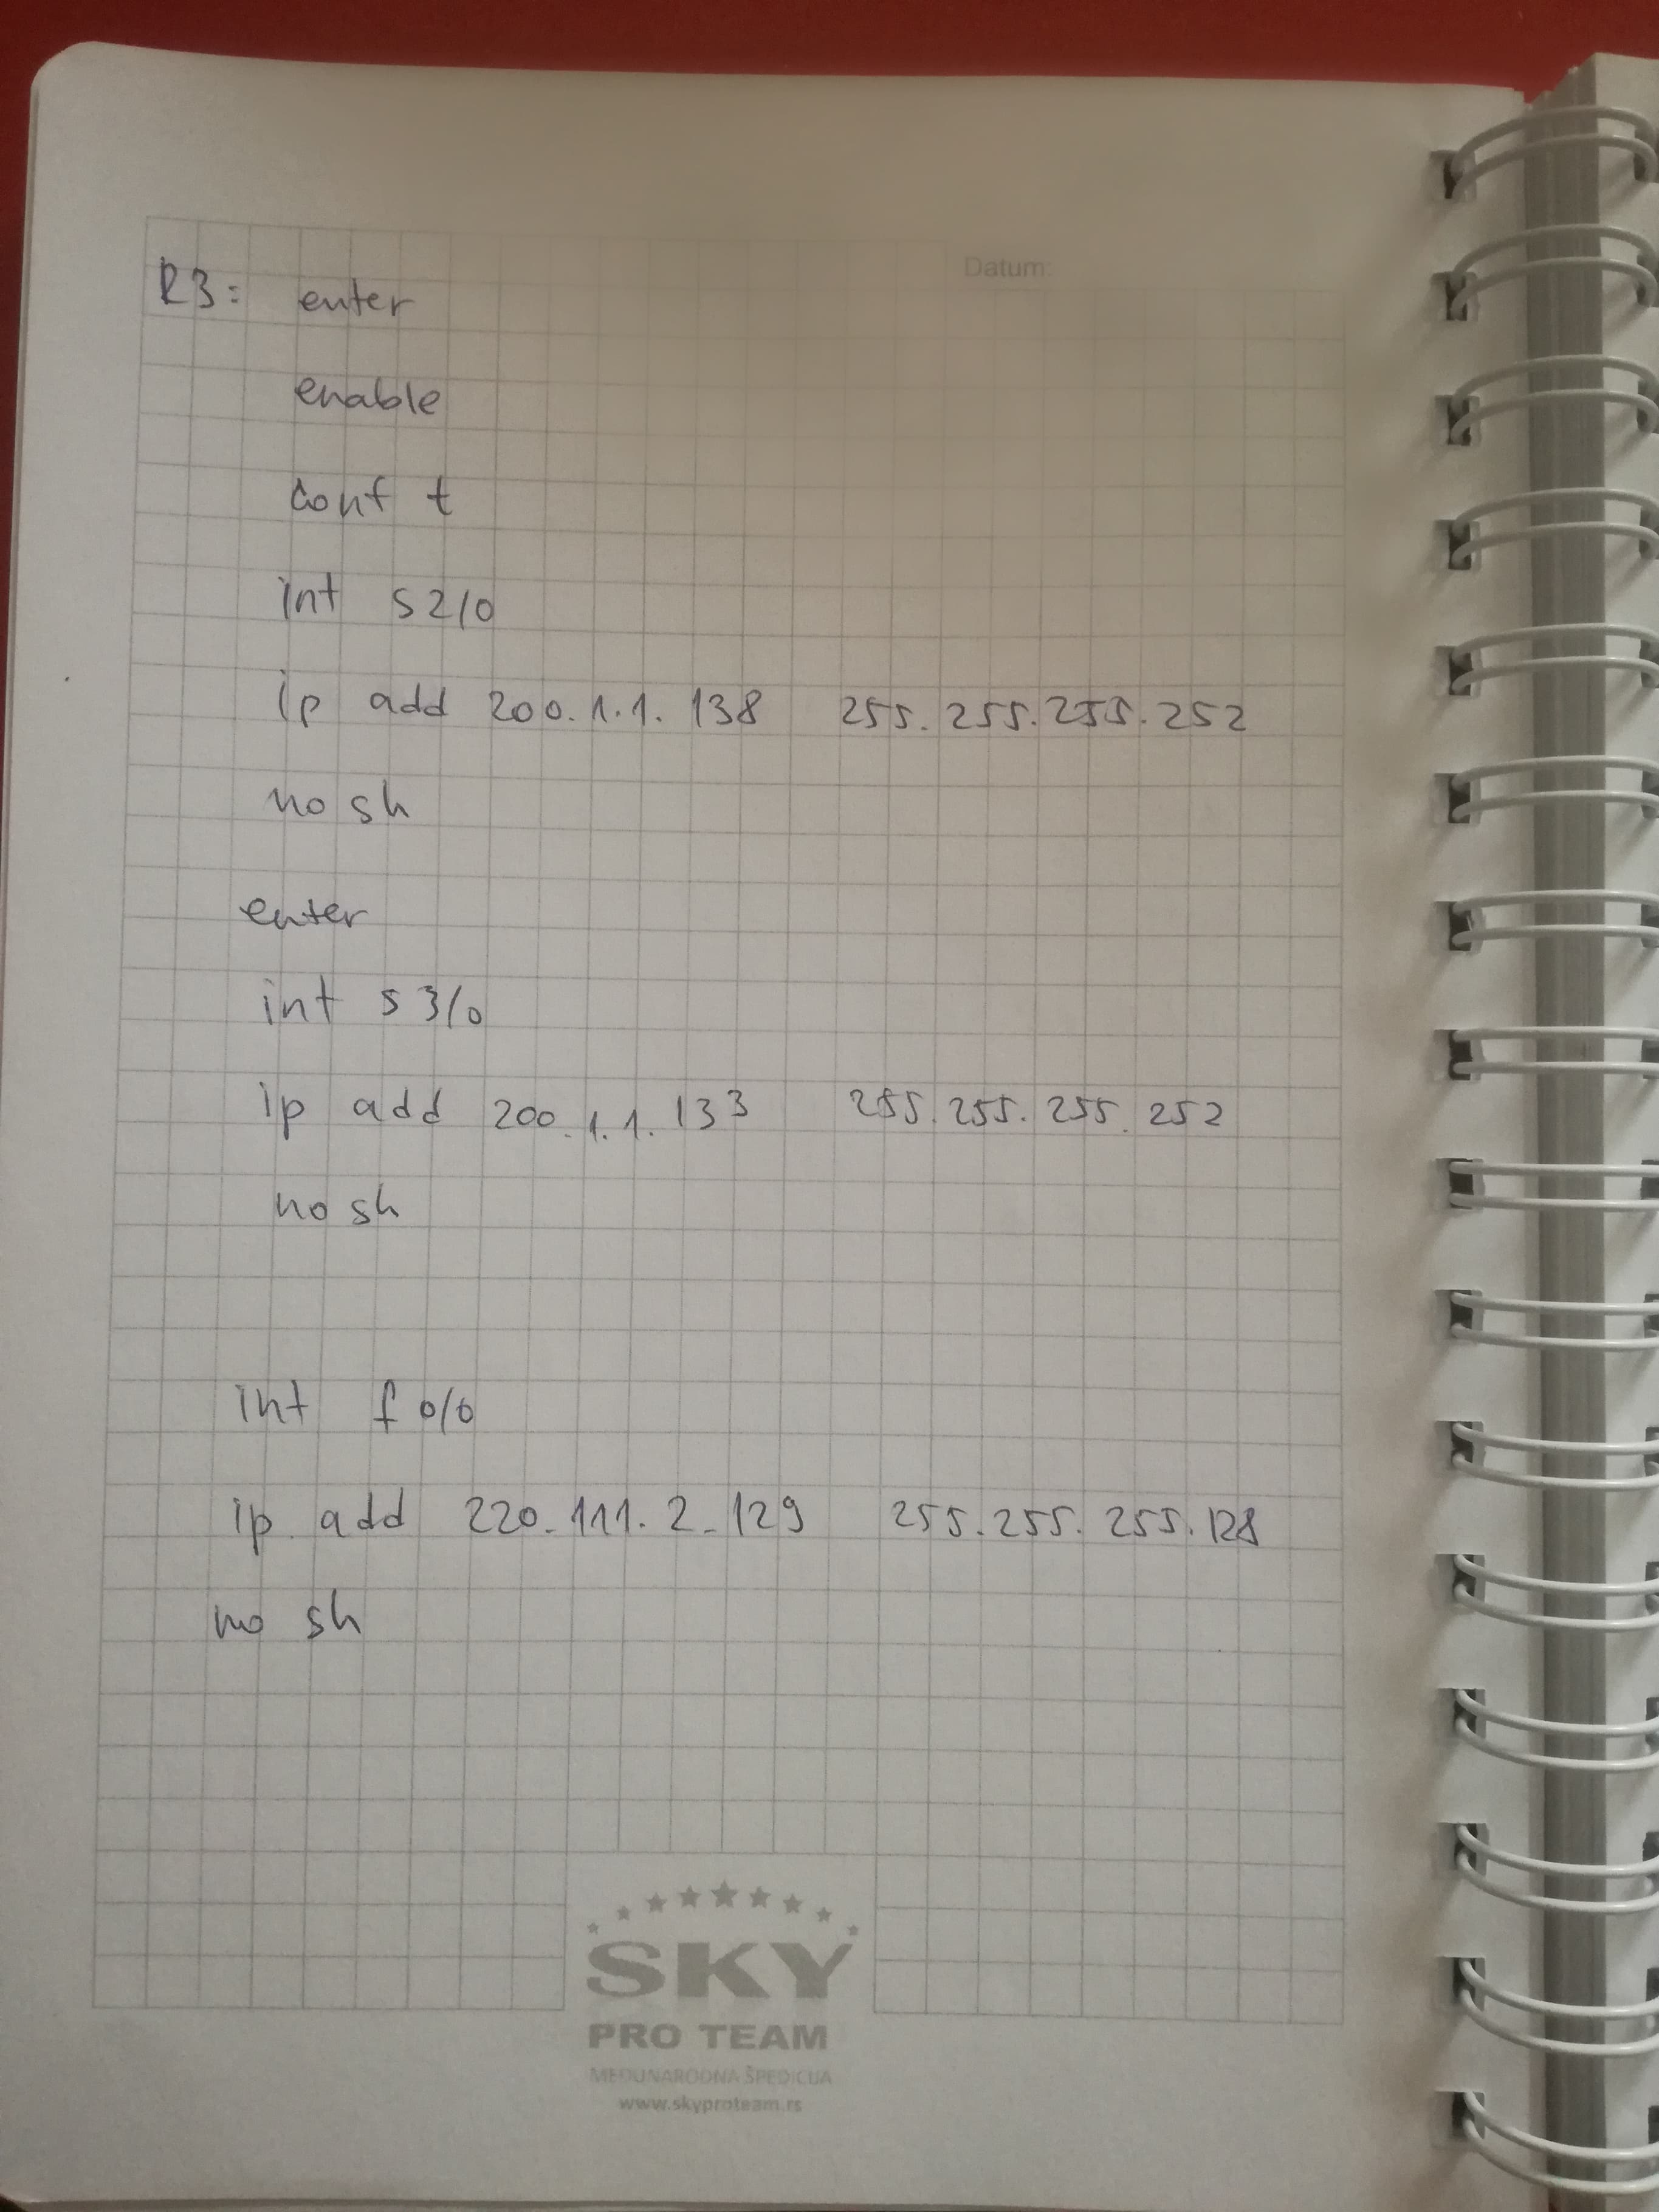 Datum:
R3: enter
enable
conf t
int s2/0
ip add 200.1.1.138 255.255.255.252
no sh
enter
int s3/0
ip add 200.1.1.133 255.255.255.252
no sh
int f0/0
ip add 220.111.2.129 255.255.255.128
no sh
SKY
PRO TEAM
MEĐUNARODNA ŠPEDICIJA
www.skyproteam.rs